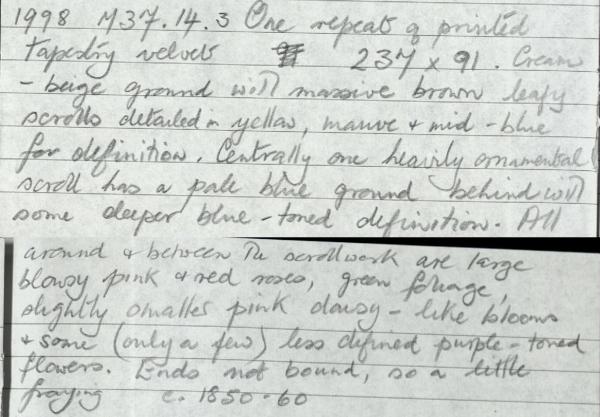 1998 M37.14.3 One repeat of printed
tapestry velvet 237 x 91. Cream
- beige ground with massive brown leafy
scrolls detailed in yellow, mauve + mid-blue
for definition. Centrally one heavily ornamental
scroll has a pale blue ground behind with
some deeper blue-toned definition. All
around + between the scrollwork are large
blowsy pink + red roses, green foliage,
slightly smaller pink daisy-like blooms
+ some (only a few) less defined purple-toned
flowers. Ends not bound, so a little
fraying c. 1850-60